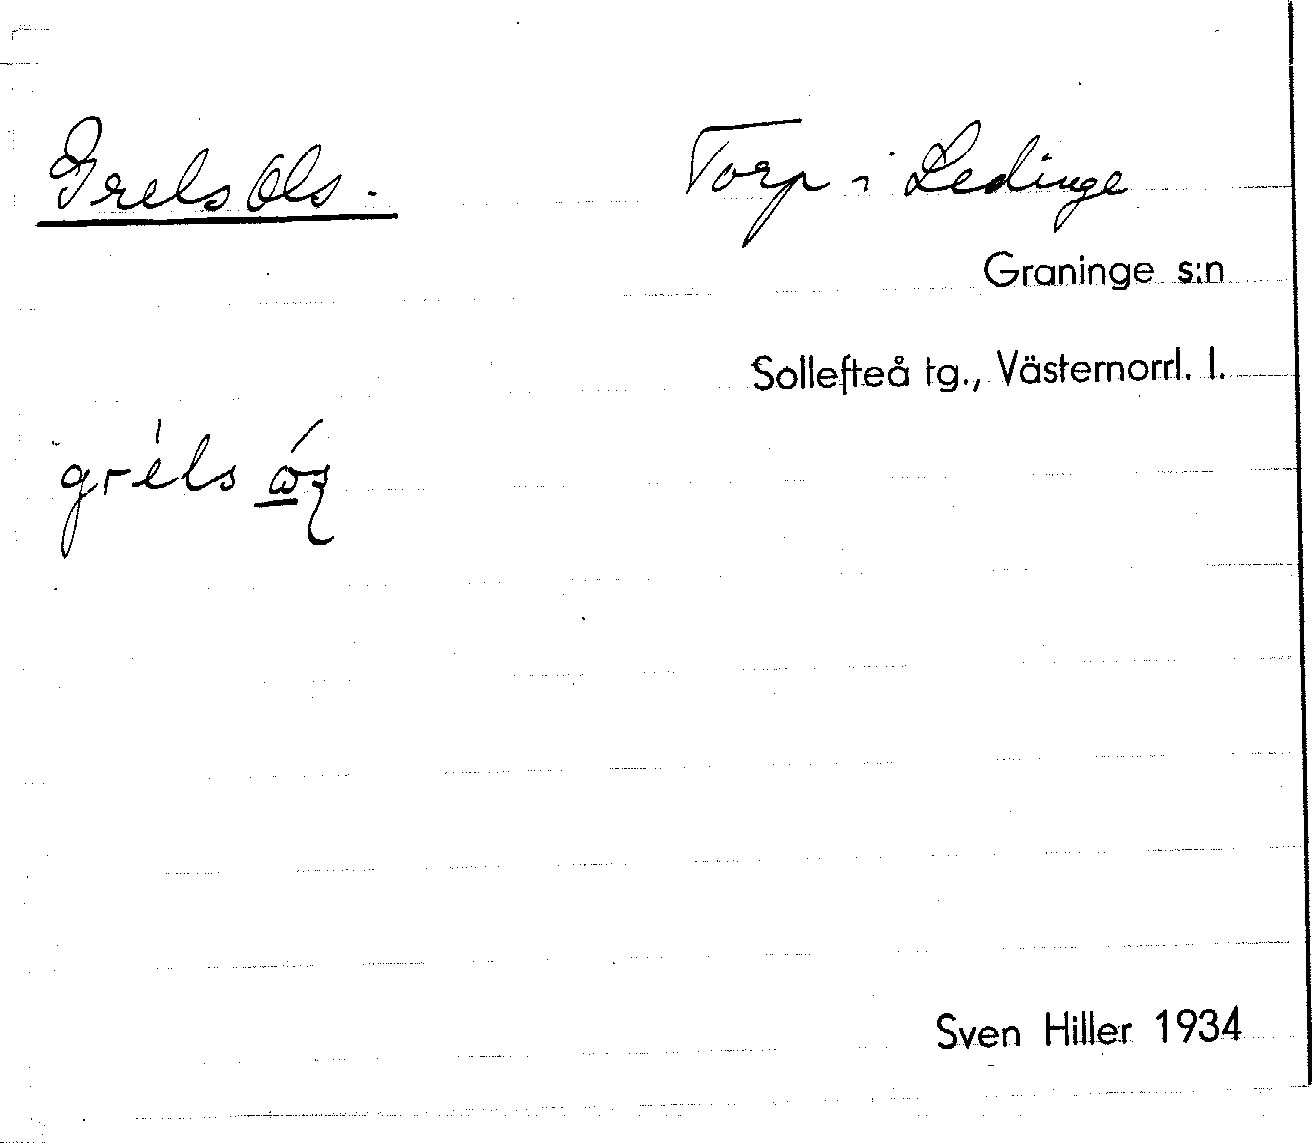 Grels Ols. Torp i Ledinge
Graninge s:n
Sollefteå tg., Västernorrl. l.
grèls
Sven Hiller 1934